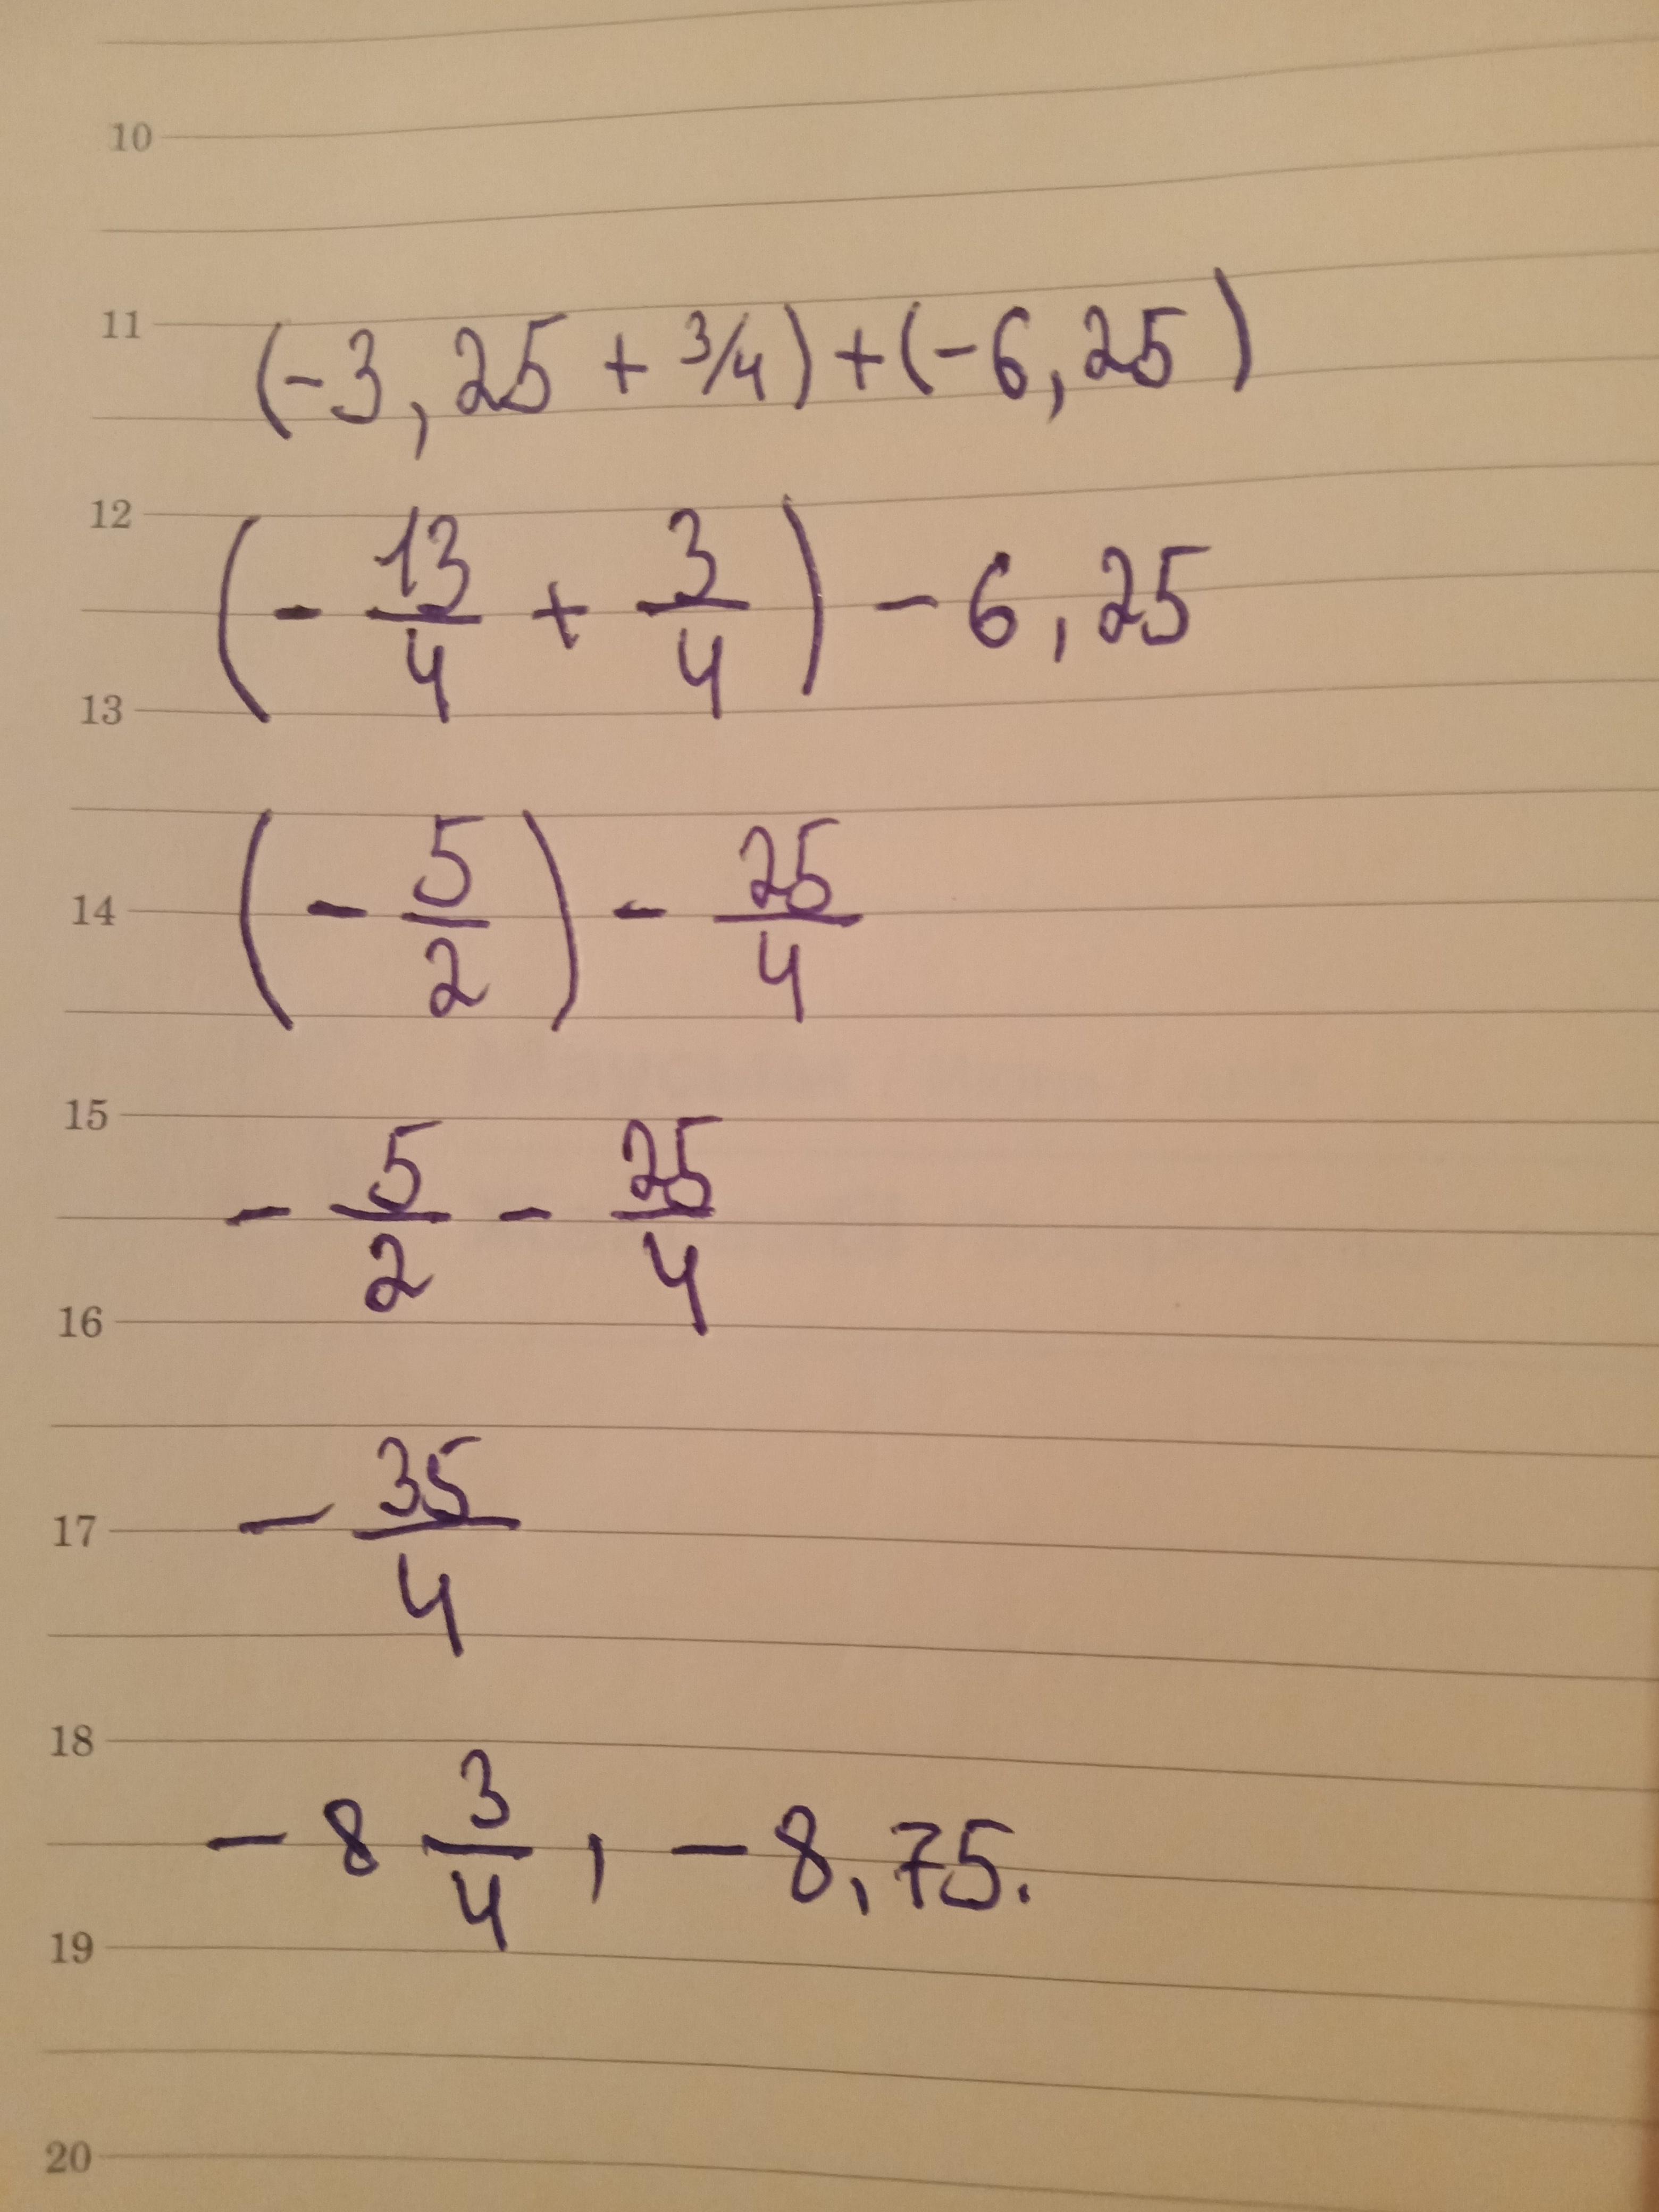 10
11 (-3,25 + 3/4) + (-6,25)
12
(- 13/4 + 3/4) - 6,25
13
14 (- 5/2) - 25/4
15
- 5/2 - 25/4
16
17 - 35/4
18
- 8 3/4, - 8,75.
19
20